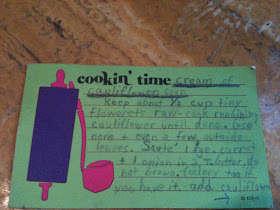 cookin' time cream of
cauliflower soup
Keep about ¾ cup tiny
flowerets raw-cook remaining
cauliflower until done. Use
nore + even a few outside
leaves. Sauté 1 lge. carrot
+ 1 onion in 2 T butter, do
not brown. (celery too if
you have it - add cauliflower